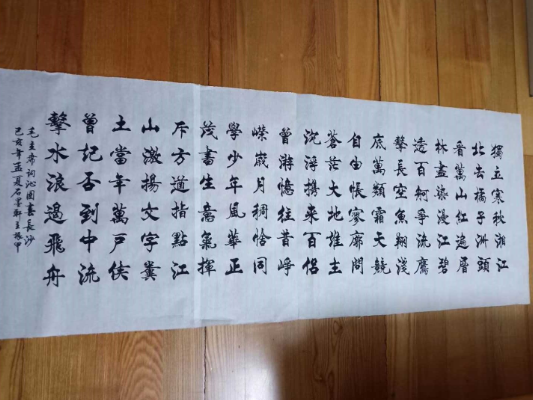 獨立寒秋湘江
北去橘子洲頭
看萬山紅遍層
林盡染漫江碧
透百舸爭流鷹
擊長空魚翔淺
底萬類霜天競
自由悵寥廓問
蒼茫大地誰主
沈浮携來百侶
曾游憶往昔崢
嶸歲月稠恰同
學少年風華正
茂書生意氣揮
斥方遒指點江
山激揚文字糞
土當年萬戶侯
曾記否到中流
擊水浪遏飛舟
毛主席詞沁園春長沙
己亥年孟夏石墨軒主振甲